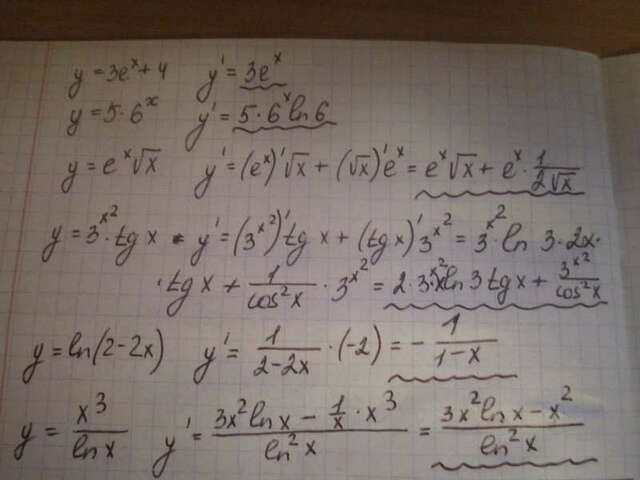 y = 3eˣ + 4 y' = 3eˣ
y = 5·6ˣ y' = 5·6ˣ ln 6
y = eˣ√x y' = (eˣ)'√x + (√x)'eˣ = eˣ√x + eˣ · 1/(2√x)
y = 3^(x²) · tg x y' = (3^(x²))' tg x + (tg x)' 3^(x²) = 3^(x²) · ln 3 · 2x ·
· tg x + 1/(cos²x) · 3^(x²) = 2·3^(x²) x ln 3 tg x + 3^(x²)/(cos²x)
y = ln(2-2x) y' = 1/(2-2x) · (-2) = - 1/(1-x)
y = x³/(ln x) y' = (3x² ln x - 1/x · x³)/(ln²x) = (3x² ln x - x²)/(ln²x)